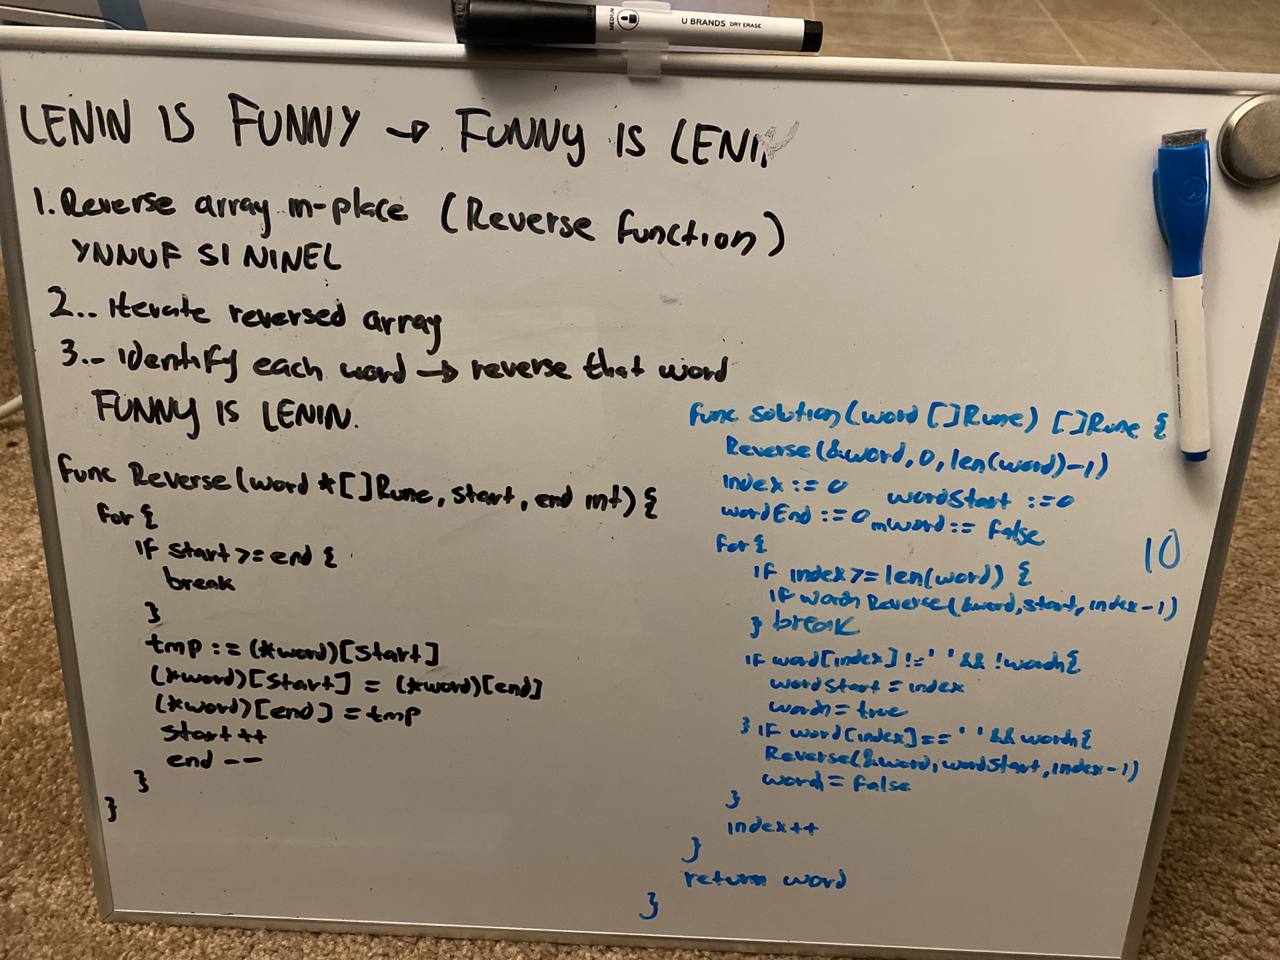 MEDIUM
U BRANDS DRY ERASE
LENIN IS FUNNY → FUNNY IS LENIN
1. Reverse array in-place (Reverse function)
YNNUF SI NINEL
2.. iterate reversed array
3.- identify each word → reverse that word
FUNNY IS LENIN.
func Reverse(word *[]Rune, start, end int) {
for {
if start >= end {
break
}
tmp := (*word)[start]
(*word)[start] = (*word)[end]
(*word)[end] = tmp
start++
end --
}
}
func solution(word []Rune) []Rune {
Reverse(&word, 0, len(word)-1)
index := 0 wordStart := 0
wordEnd := 0 inWord := false
for {
if index >= len(word) {
if Reverse(&word, start, index-1)
} break
if word[index] != ' ' && {
wordStart = index
= true
} if word[index] == ' ' && {
Reverse(&word, wordStart, index-1)
= false
}
index++
}
return word
}
10